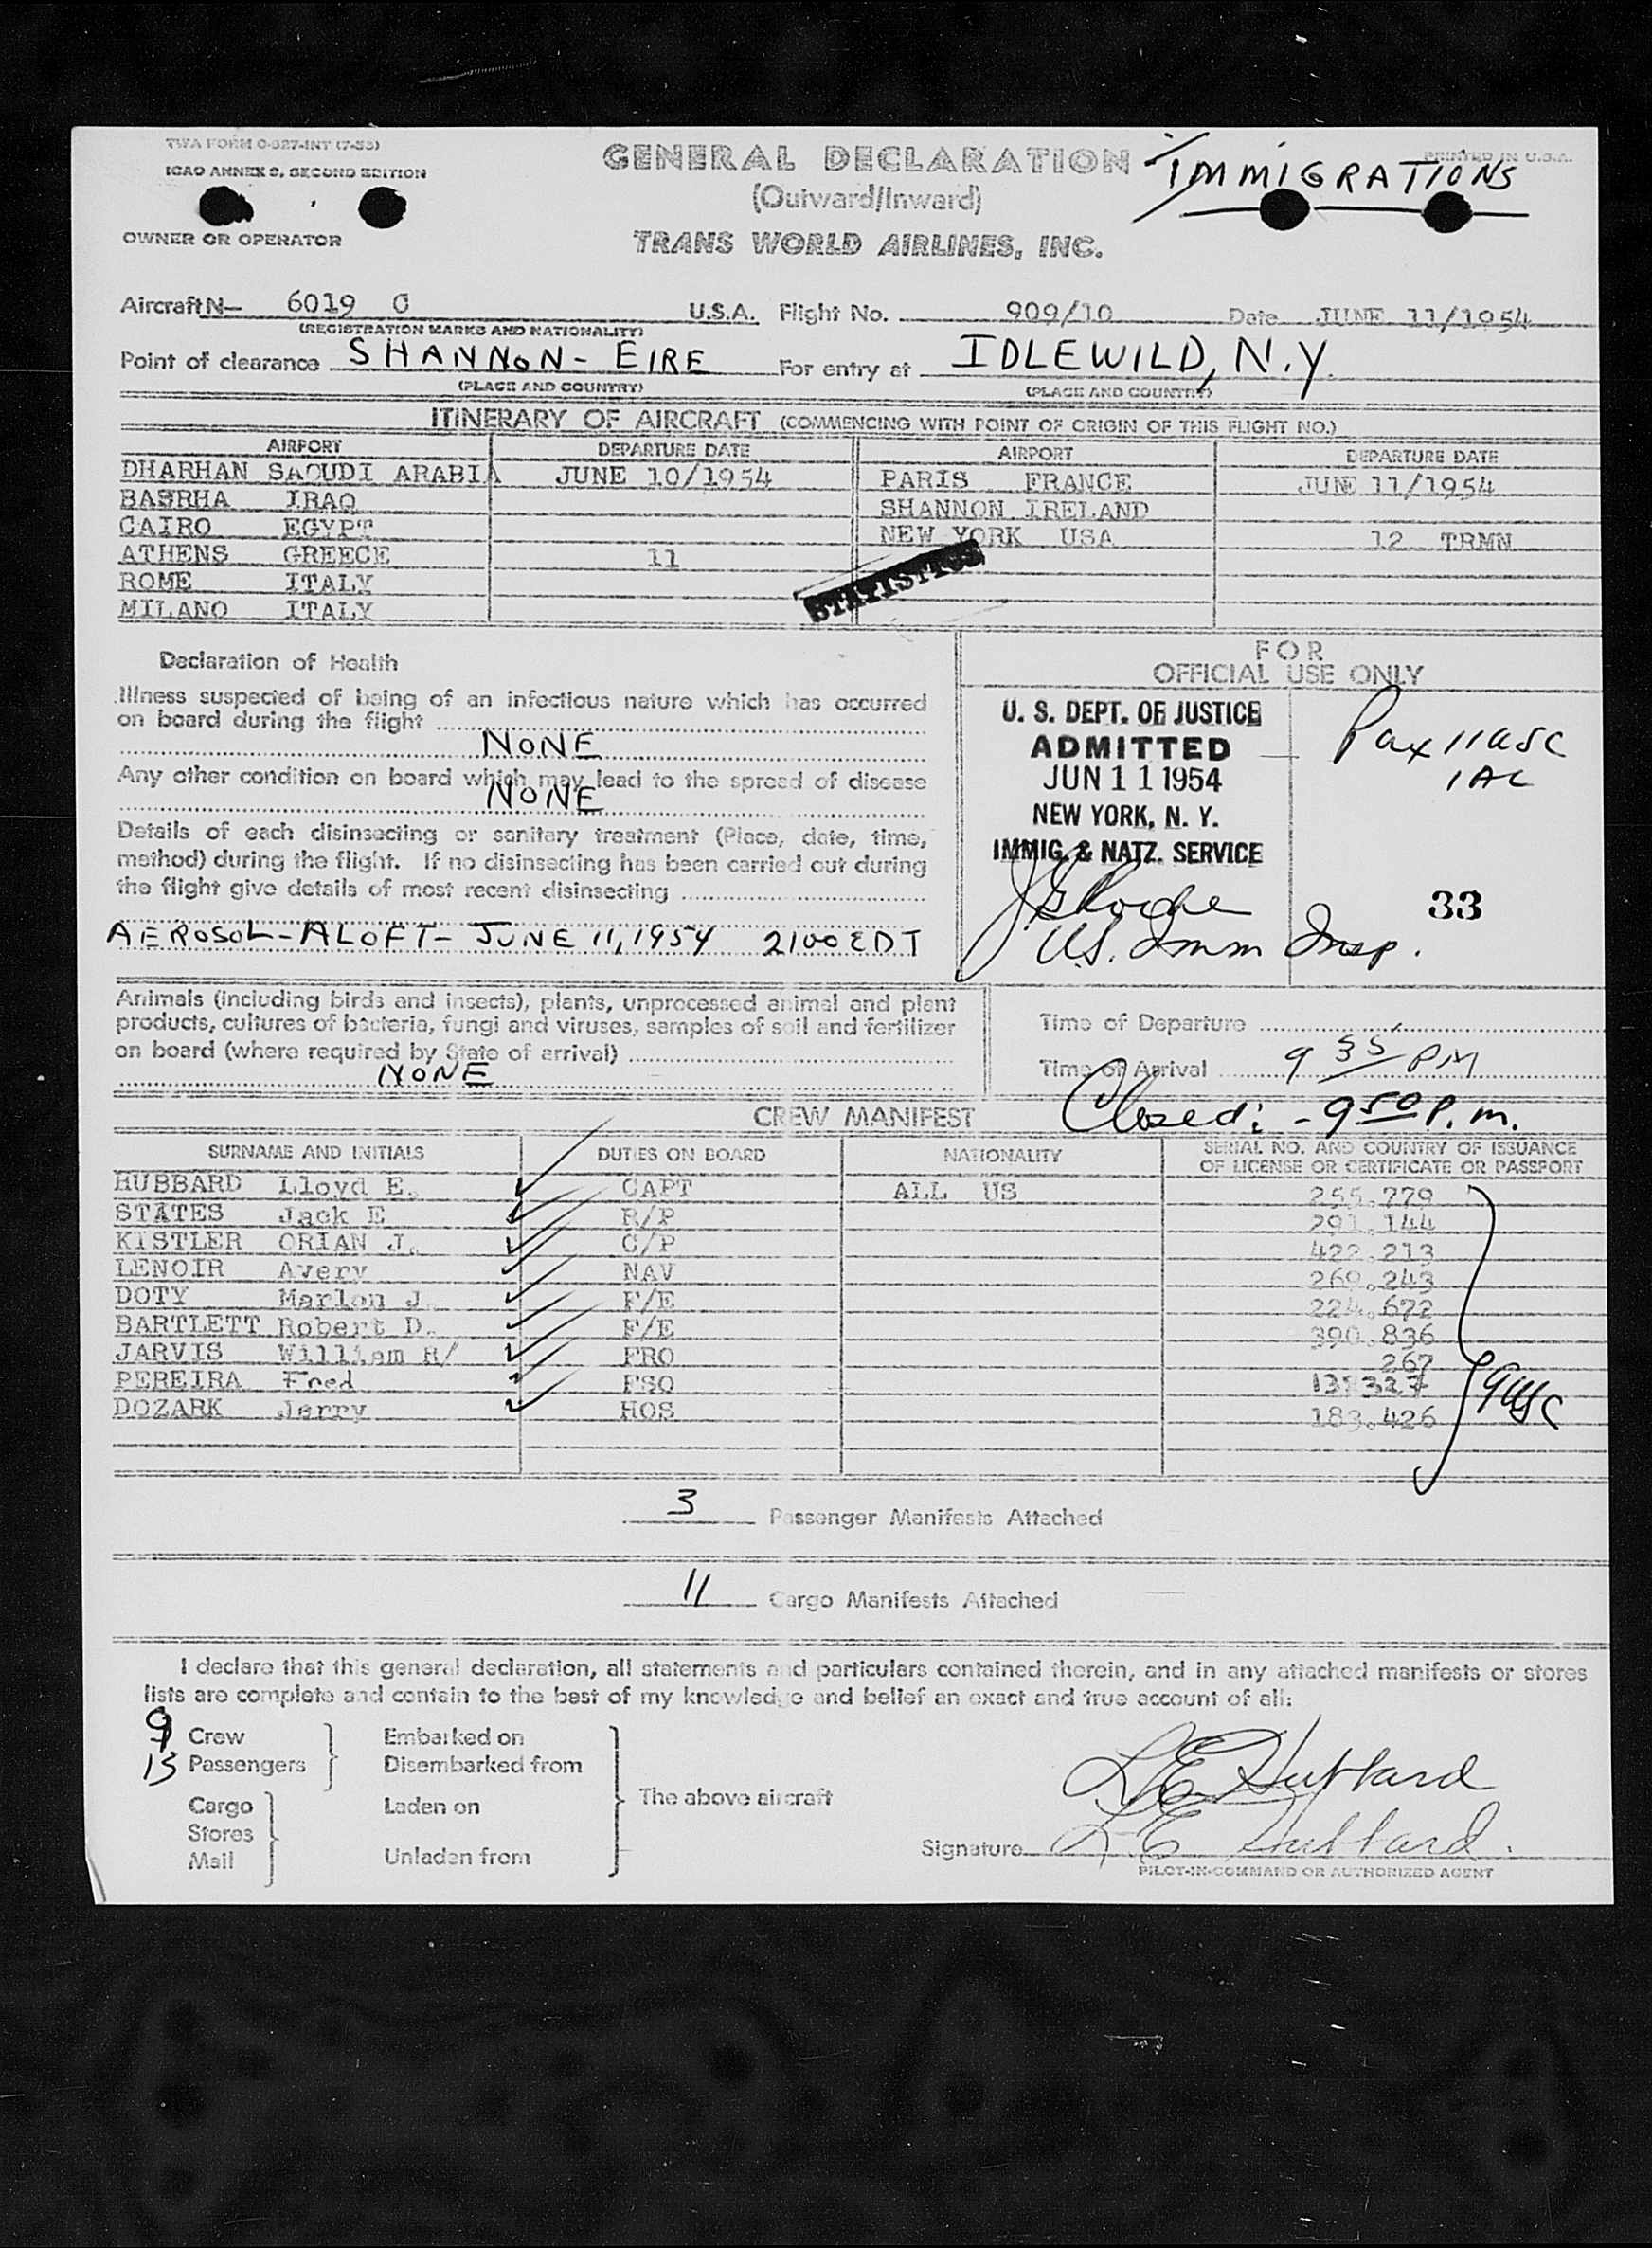 TWA FORM O-327-INT (7-53)
ICAO ANNEX 9, SECOND EDITION
PRINTED IN U.S.A.
IMMIGRATIONS
GENERAL DECLARATION
(Outward/Inward)
OWNER OR OPERATOR
TRANS WORLD AIRLINES, INC.
Aircraft N— 6019 C U.S.A. Flight No. 909/10 Date JUNE 11/1954
(REGISTRATION MARKS AND NATIONALITY)
Point of clearance SHANNON - EIRE For entry at IDLEWILD, N.Y.
(PLACE AND COUNTRY) (PLACE AND COUNTRY)
ITINERARY OF AIRCRAFT (COMMENCING WITH POINT OF ORIGIN OF THIS FLIGHT NO.)
AIRPORT DEPARTURE DATE AIRPORT DEPARTURE DATE
DHARHAN SAOUDI ARABIA JUNE 10/1954 PARIS FRANCE JUNE 11/1954
BASRHA IRAQ SHANNON IRELAND
CAIRO EGYPT NEW YORK USA 12 TRMN
ATHENS GREECE 11
ROME ITALY
MILANO ITALY
STATISTICS
Declaration of Health
Illness suspected of being of an infectious nature which has occurred
on board during the flight
NONE
Any other condition on board which may lead to the spread of disease
NONE
Details of each disinsecting or sanitary treatment (Place, date, time,
method) during the flight. If no disinsecting has been carried out during
the flight give details of most recent disinsecting
AEROSOL - ALOFT - JUNE 11, 1954 2100 EDT
FOR
OFFICIAL USE ONLY
U. S. DEPT. OF JUSTICE
ADMITTED
JUN 11 1954
NEW YORK, N. Y.
IMMIG. & NATZ. SERVICE
Pax 11 USC
1 AC
33
U.S. Imm Insp.
Animals (including birds and insects), plants, unprocessed animal and plant
products, cultures of bacteria, fungi and viruses, samples of soil and fertilizer
on board (where required by State of arrival)
NONE
Time of Departure
Time of Arrival 9 35 PM
Closed: - 9 50 P.m.
CREW MANIFEST
SURNAME AND INITIALS DUTIES ON BOARD NATIONALITY SERIAL NO. AND COUNTRY OF ISSUANCE
OF LICENSE OR CERTIFICATE OR PASSPORT
HUBBARD Lloyd E. CAPT ALL US 255.779
STATES Jack E R/P 291.144
KISTLER ORIAN J. C/P 422.213
LENOIR Avery NAV 269.243
DOTY Marlon J. F/E 224.672
BARTLETT Robert D. F/E 390.836
JARVIS William H/ FRO 267
PEREIRA Fred FSO
DOZARK Jerry HOS 183.426
9 USC
3 Passenger Manifests Attached
11 Cargo Manifests Attached
I declare that this general declaration, all statements and particulars contained therein, and in any attached manifests or stores
lists are complete and contain to the best of my knowledge and belief an exact and true account of all:
9 Crew Embarked on
13 Passengers Disembarked from
The above aircraft
Cargo Laden on
Stores
Mail Unladen from
L E Hubbard
Signature L E Hubbard.
PILOT-IN-COMMAND OR AUTHORIZED AGENT